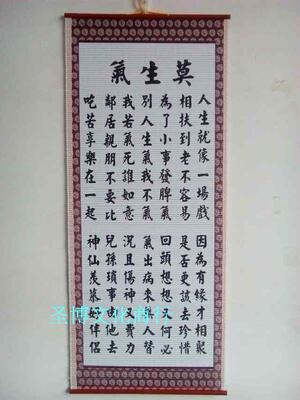 莫生氣
人生就像一場戲 因為有緣才相聚
相扶到老不容易 是否更該去珍惜
為了小事發脾氣 回頭想想又何必
別人生氣我不氣 氣出病來無人替
我若氣死誰如意 況且傷神又費力
鄰居親朋不要比 兒孫瑣事由他去
吃苦享樂在一起 神仙羨慕好伴侶
圣博文化商行